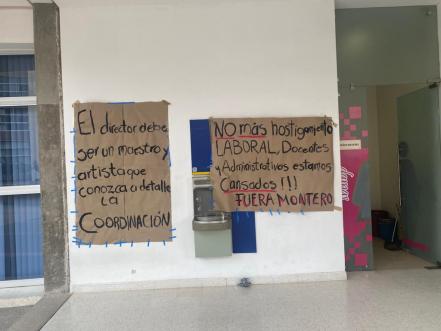 El director debe
ser un maestro y
artista que
conozca a detalle
LA
COORDINACIÓN
NO más hostigamiento
LABORAL, Docentes
y Administrativos estamos
Cansados !!!
FUERA MONTERO